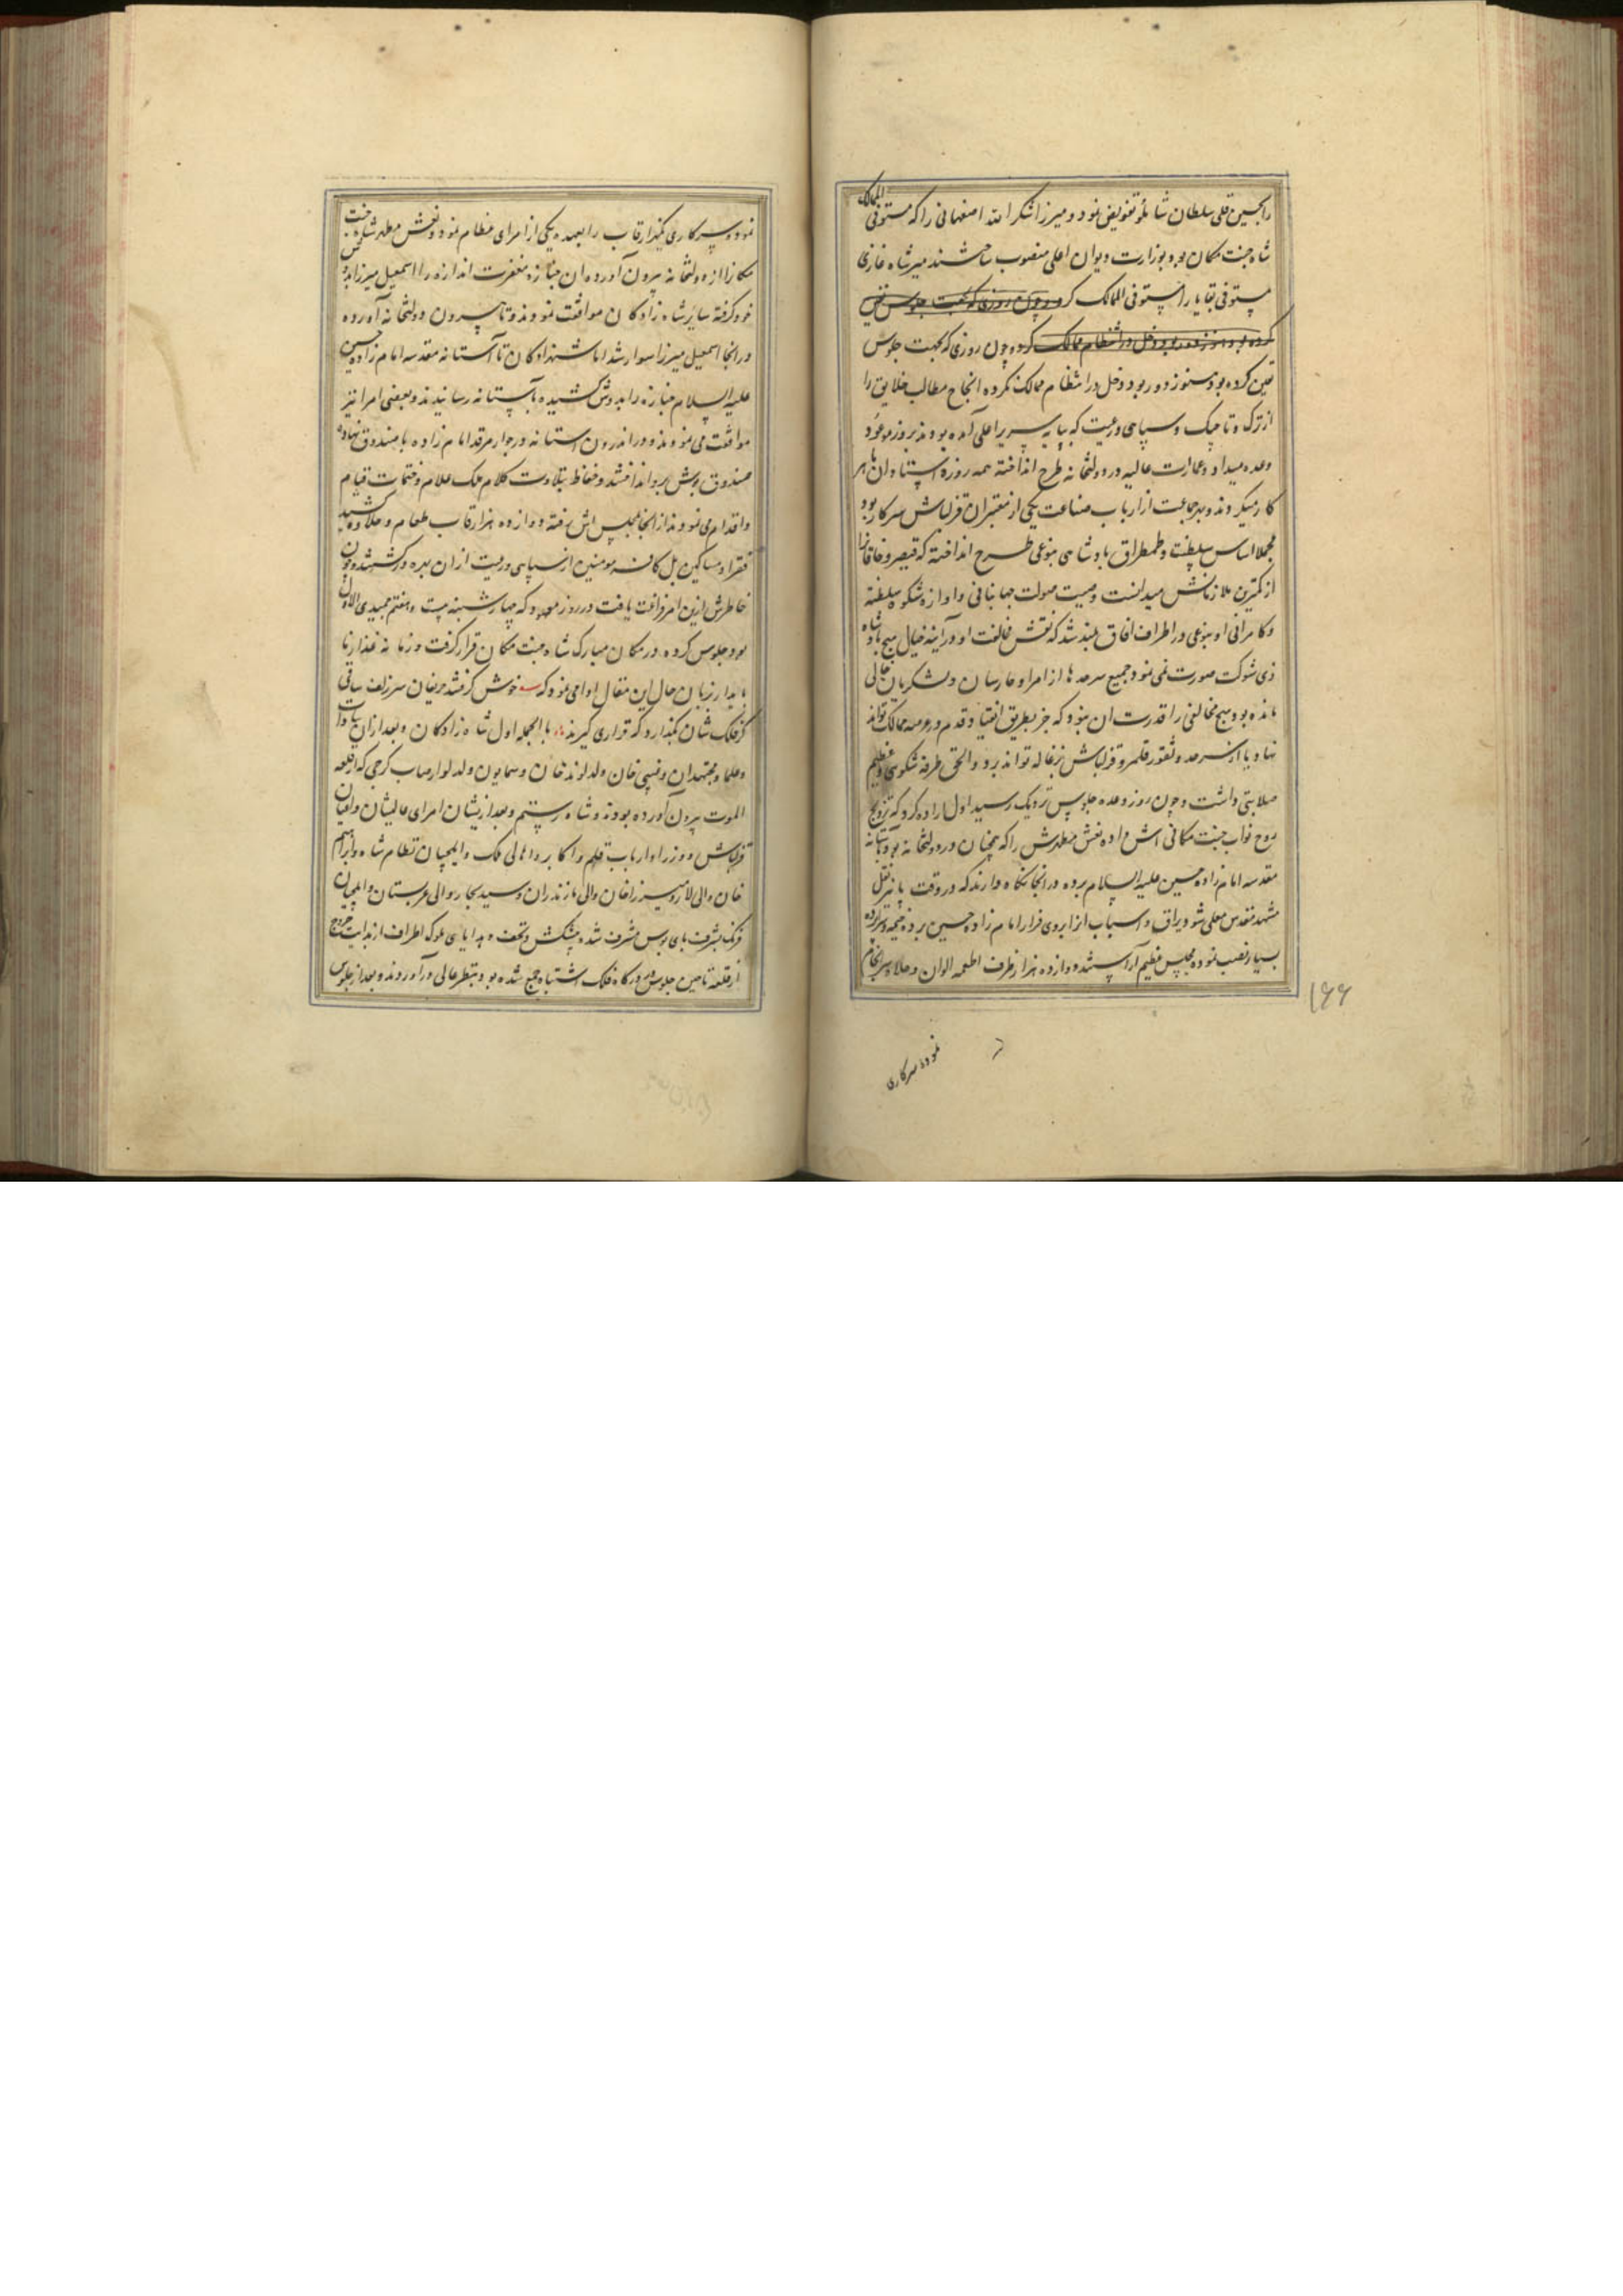 را بحسین قلی سلطان شاملو تفویض نمود و میرزا شکر الله اصفهانی را که مستوفی الممالک
شاه جنت مکان بود بوزارت دیوان اعلی منصوب ساختند میر شاه غازی
مستوفی بقایا را مستوفی الممالک کرد و چون روزی که جهت جلوس تعیین
کرده بود هنوز دور بود دخل در انتظام ممالک کرده چون روزی که بجهت جلوس
تعین کرده بود هنوز دور بود دخل در انتظام ممالک نکرده انجاح مطالب خلایق را
از ترک و تاجیک و سپاهی و رعیت که بپایه سریر اعلی آمده بودند بروز موعود
وعده میداد و عمارت عالیه در دولتخانه طرح انداخته همه روزه استادان ماهر
کار میکردند و بهر جماعت از ارباب صناعت یکی از معتبران قزلباش سرکار بود
مجملا اساس سلطنت و طمطراق پادشاهی بنوعی طرح انداخته که قیصر و خاقانرا
از کمترین ملازمانش میدانست و صیت صولت جهانبانی و اوازه شکوه سلطنه
و کامرانی او بنوعی در اطراف افاق بلند شد که نقش مخالفت او در آینه خیال هیچ پادشاه
ذی شوکت صورت نمی نمود جمیع سرحدها از امرا و حارسان و لشکریان خالی
مانده بود و هیچ مخالفی را قدرت ان نبود که جز بطریق انقیاد قدم در عرصه ممالک تواند
نهاد یا از سرحد و ثغور قلمرو قزلباش بزغاله تواند برد و الحق طرفه شکوهی و عظیم
صلابتی داشت و چون روز وعده جلوس نزدیک رسید اول اراده کرد که ترویج
روح نواب جنت مکانی اش داده نعش مطهرش را که همچنان در دولتخانه بود بآستانه
مقدسه امام زاده حسین علیه السلام برده در انجا نگاه دارند که در وقت بانیر نقل
مشهد مقدس معلی شود یراق و اسباب انرا بروی فرار امام زاده حسین برده خیمه و سراپرده
بسیار نصب نموده مجلس عظیم آراستند و دوازده هزار ظرف اطعمه الوان و حلاوه سرانجام
۱۶۶
نموده سرکاری
نموده سرکاری یکهزار قاب را بعهده یکی از امرای عظام نمود و نعش مطهر شاه جنت
مکانرا از دولتخانه بیرون آورده ان جنازه مغفرت اندازه را اسمعیل میرزا بدوش
خود گرفته سایر شاه زادگان موافقت نمودند و تا بیرون دولتخانه آورده
در انجا اسمعیل میرزا سوار شد اما شهزادگان تا آستانه مقدسه امام زاده حسین
علیه السلام جنازه را بدوش کشیده بآستانه رسانیدند و بعضی امرا نیز
موافقت می نمودند و در اندرون استانه در جوار مرقد امام زاده با صندوق نهاده
صندوق پوش برو انداختند و حفاظ بتلاوت کلام ملک علام و ختمات قیام
و اقدام می نمودند از انجا بمجلس اش رفته دوازده هزار قاب طعام و حلاوه کشیده
فقرا و مساکین بل کافه مومنین از سپاهی و رعیت از ان بهره ور گشتند و چون
خاطرش ازین امر فراغت یافت در روز موعود که چهارشنبه بیست و هفتم جمیدی الاول
بود جلوس کرده در مکان مبارک شاه جنت مکان قرار گرفت و زمانه غدار نا
پایدار بزبان حال این مقال ادا می نمود که خوش گرفتند حریفان سر زلف ساقی
گر فلک شان بگذارد که قراری گیرند بالجمله اول شاه زادگان و بعد از ان سادات
و علما و مجتهدان و عیسی خان ولد لوند خان و سمایون ولد لوارصاب کرجی که از قلعه
الموت بیرون آورده بودند و شاه رستم و بعد ازیشان امرای عالیشان و اعیان
قزلباش و وزرا و ارباب قلم و اکابر و اهالی ملک و ایلچیان نظام شاه و ابراهیم
خان والی لار و میرزا خان والی مازندران و سید سجاد والی عربستان و ایلچیان
فرنک بشرف پای بوس مشرف شده پیشکش و تحف و هدایای ملوک اطراف از بدایت خروج
از قلعه تا حین جلوس در درکاه فلک اشتباه جمع شده بود بنظر عالی درآوردند و بعد از جلوس